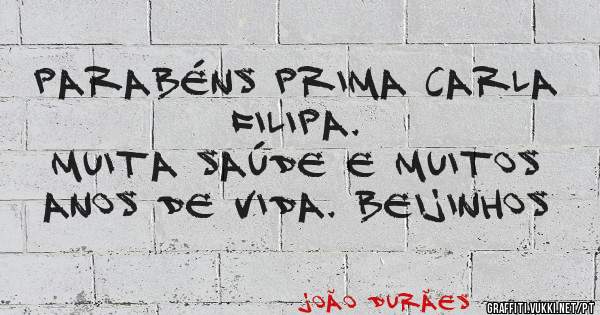 PARABÉNS PRIMA CARLA
FILIPA.
MUITA SAÚDE E MUITOS
ANOS DE VIDA. BEIJINHOS
JOÃO DURÃES
GRAFFITI.VUKKI.NET/PT